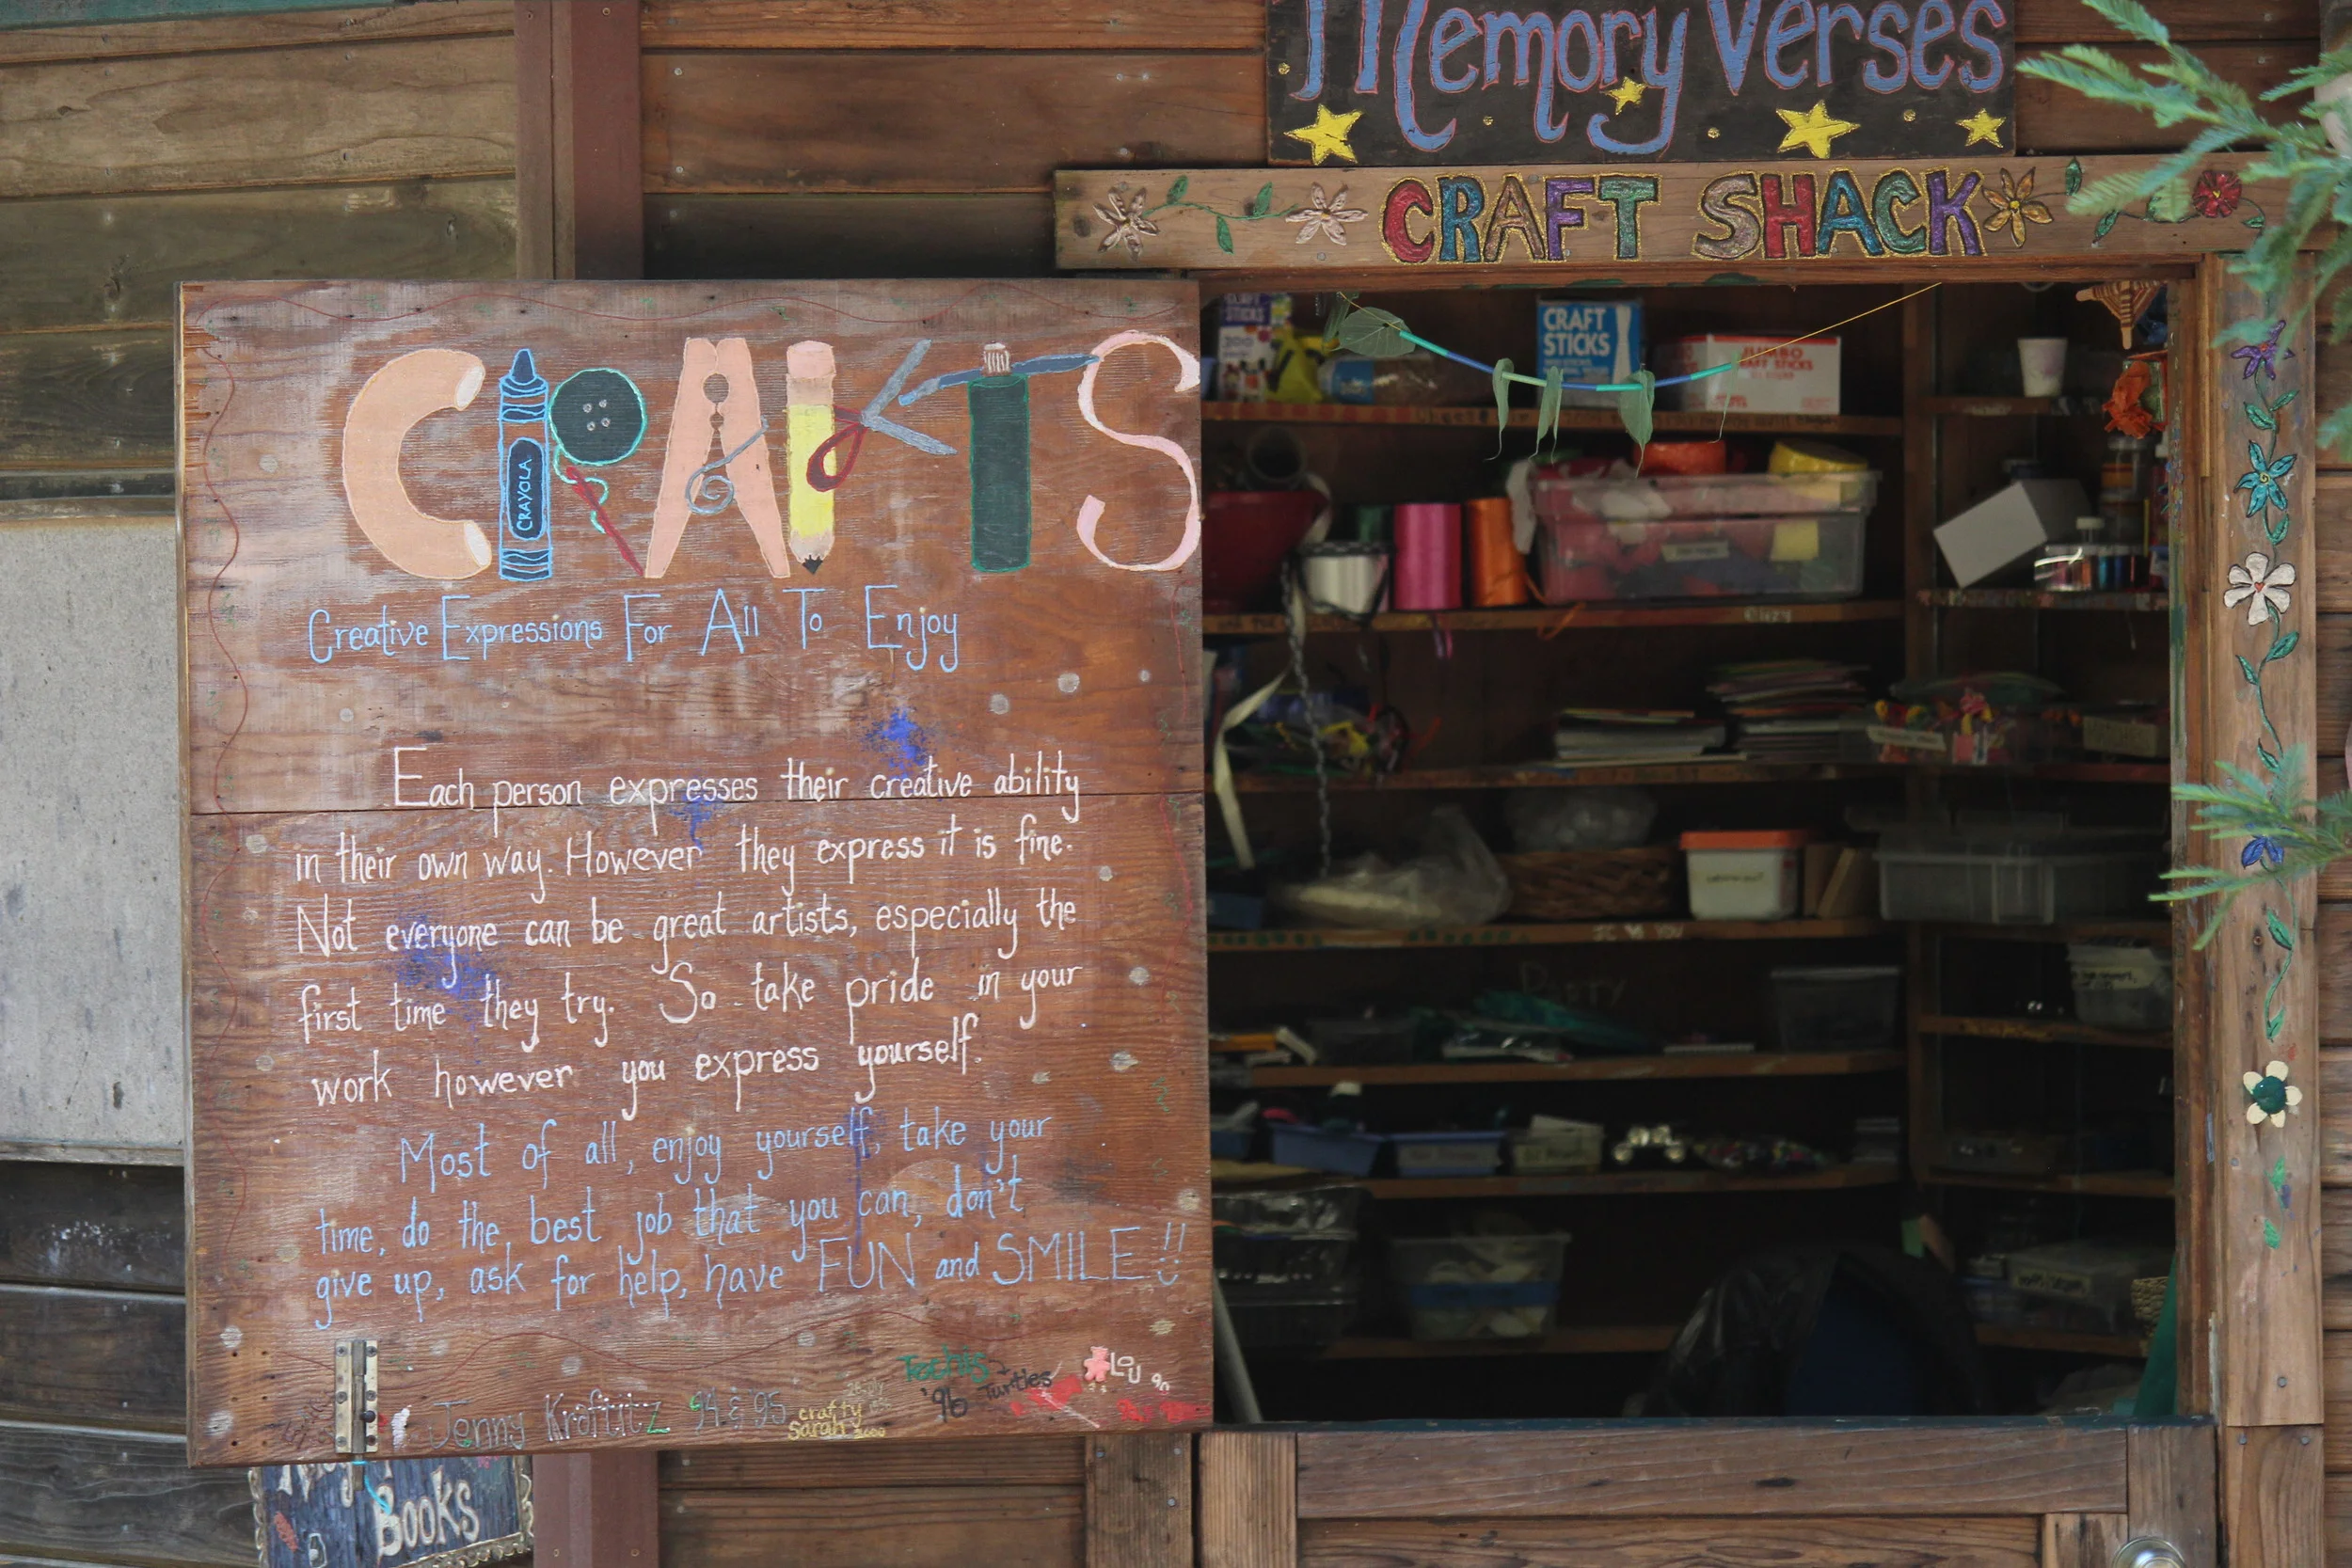 Memory Verses
CRAFT SHACK
CRAFTS
CRAYOLA
Creative Expressions For All To Enjoy
Each person expresses their creative ability
in their own way. However they express it is fine.
Not everyone can be great artists, especially the
first time they try. So take pride in your
work however you express yourself.
Most of all, enjoy yourself, take your
time, do the best job that you can, don't
give up, ask for help, have FUN and SMILE!!
Jenny 94 & '95
crafty
Sarah 2000
'96 Turtles
LOU 90
BOOKS
CRAFT
STICKS
JUMBO
CRAFT STICKS
STICKS